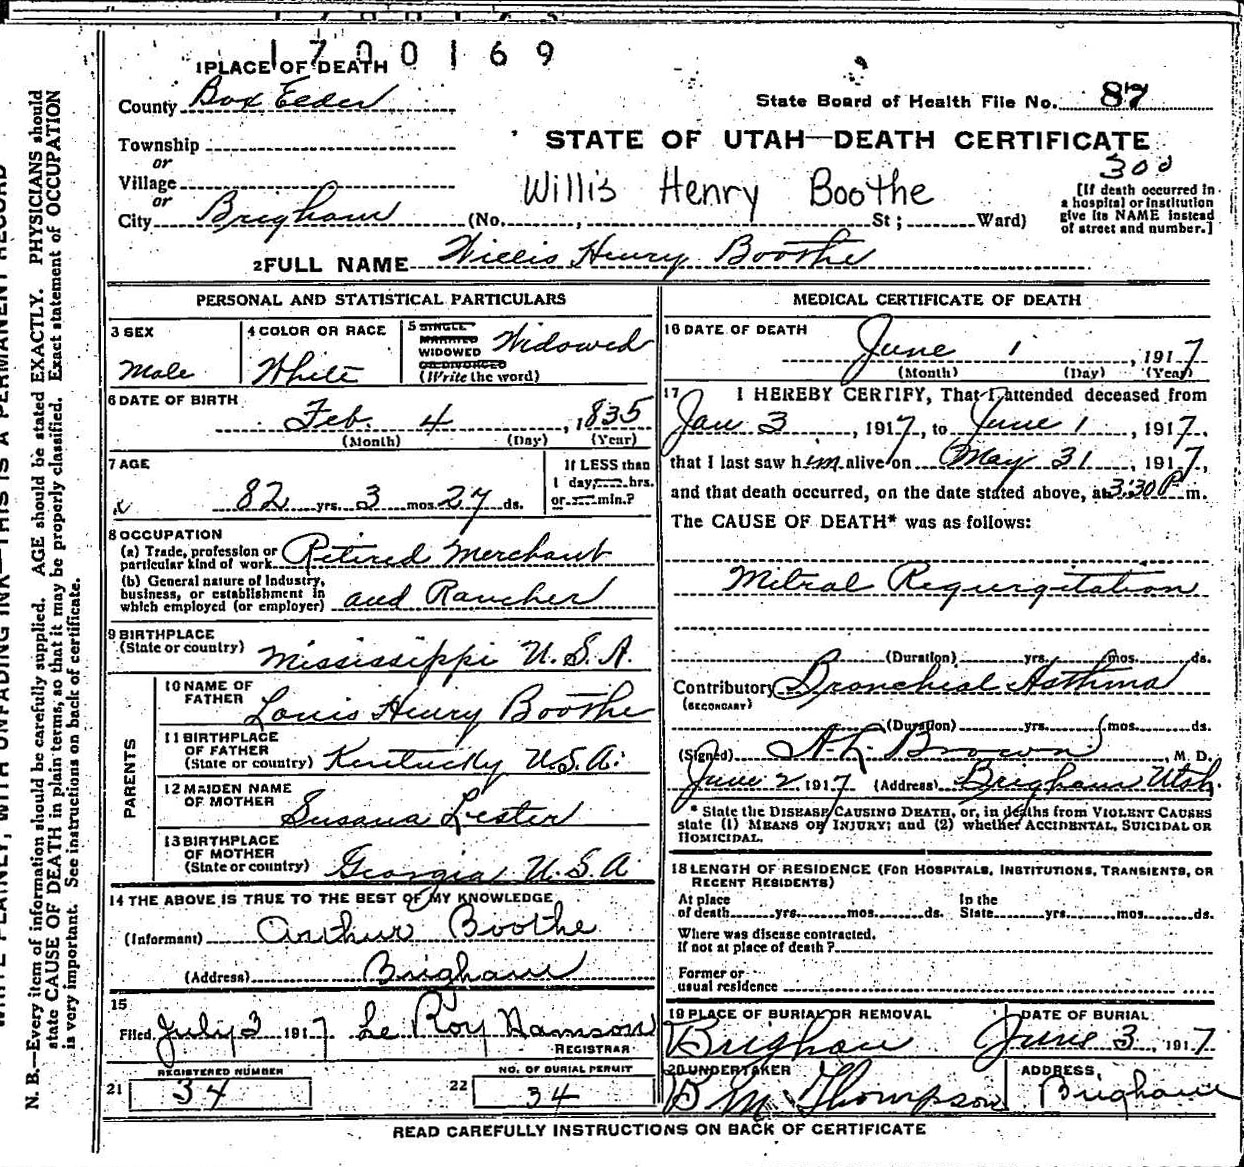 1700169
1 PLACE OF DEATH
County Box Elder
State Board of Health File No. 87
Township
or
Village
or
City Brigham (No. , St; Ward)
STATE OF UTAH—DEATH CERTIFICATE
300
Willis Henry Boothe
[If death occurred in
a hospital or institution
give its NAME instead
of street and number.]
2 FULL NAME Willis Henry Boothe
PERSONAL AND STATISTICAL PARTICULARS
3 SEX
Male
4 COLOR OR RACE
White
5 SINGLE
MARRIED
WIDOWED
OR DIVORCED
(Write the word)
Widowed
6 DATE OF BIRTH
Feb. 4, 1835
(Month) (Day) (Year)
7 AGE
82 yrs. 3 mos. 27 ds.
If LESS than
1 day, hrs.
or min.?
8 OCCUPATION
(a) Trade, profession or
particular kind of work Retired Merchant
(b) General nature of Industry,
business, or establishment in
which employed (or employer) and Rancher
9 BIRTHPLACE
(State or country) Mississippi U.S.A.
PARENTS
10 NAME OF
FATHER Louis Henry Boothe
11 BIRTHPLACE
OF FATHER
(State or country) Kentucky U.S.A.
12 MAIDEN NAME
OF MOTHER Susana Lester
13 BIRTHPLACE
OF MOTHER
(State or country) Georgia U.S.A
14 THE ABOVE IS TRUE TO THE BEST OF MY KNOWLEDGE
(Informant) Arthur Boothe
(Address) Brigham
15
Filed July 3 1917 Le Roy
REGISTRAR
REGISTERED NUMBER
21 34
NO. OF BURIAL PERMIT
22 34
MEDICAL CERTIFICATE OF DEATH
16 DATE OF DEATH
June 1, 1917
(Month) (Day) (Year)
17 I HEREBY CERTIFY, That I attended deceased from
Jan 3, 1917, to June 1, 1917,
that I last saw him alive on May 31, 1917,
and that death occurred, on the date stated above, at 3:30 P m.
The CAUSE OF DEATH* was as follows:
Mitral Regurgitation
(Duration) yrs. mos. ds.
Contributory Bronchial Asthma
(SECONDARY)
(Duration) yrs. mos. ds.
(Signed) Brown, M. D.
June 2, 1917 (Address) Brigham Utah.
* State the DISEASE CAUSING DEATH, or, in deaths from VIOLENT CAUSES
state (1) MEANS OF INJURY; and (2) whether ACCIDENTAL, SUICIDAL OR
HOMICIDAL.
18 LENGTH OF RESIDENCE (FOR HOSPITALS, INSTITUTIONS, TRANSIENTS, OR
RECENT RESIDENTS)
At place
of death yrs. mos. ds.
In the
State yrs. mos. ds.
Where was disease contracted,
If not at place of death?
Former or
usual residence
19 PLACE OF BURIAL OR REMOVAL
Brigham
DATE OF BURIAL
June 3, 1917
20 UNDERTAKER
B M Thompson
ADDRESS,
Brigham
READ CAREFULLY INSTRUCTIONS ON BACK OF CERTIFICATE
N. B.—Every item of information should be carefully supplied. AGE should be stated EXACTLY. PHYSICIANS should
state CAUSE OF DEATH in plain terms, so that it may be properly classified. Exact statement of OCCUPATION
is very important. See instructions on back of certificate.